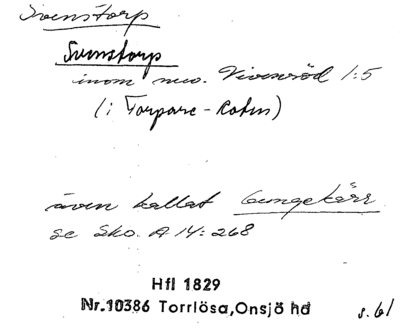 Svenstorp
Svenstorp
inom nuv. Vivensröd 1:5
(i Torpare-Rotin)
även kallat Gungekärr
se Sko. A 14:268
Hfl 1829
Nr.10386 Torrlösa,Onsjö hd
s.61